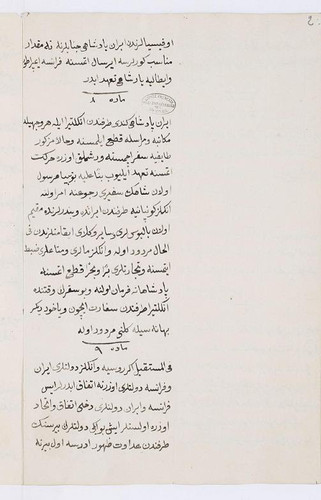 اوفیسیالردن ایران پادشاهی جنابلرینه نه مقدار
مناسب کورلرسه ارسال اتمسنه فرانسه ایمپراطوری
وایطالیه پادشاهی تعهد ایدر
ماده ٨
ایران پادشاهی کندی طرفندن انکلتیرا ایله هر وجهیله
مکاتبه ومراسله قطع ایلمسنه وحالا مزکور
طایفیه سفر ایچمسنه ودشمنلق اوزره حرکت
اتمسنه تعهد ایلیوب بناعلیه بومبایه مرسول
اولان شاهک سفیری رجوعنه امر اولنه
انکلز کومپانیه طرفندن ایرانده وبندرلرنده مقیم
اولان بالیوسلری وسایر وکلاری اقامتلرندن فی
الحال مردود اوله وانکلز مالاری ومتاعلری ضبط
ایتمسنه وتجارتلری برّاً وبحراً قطع اتمسنه
پادشاهانه فرمان اولنه وبو سفرک وقتنده
انکلتیرا طرفندن سفارت ایچون ویاخود دیکر
بهانه سیله کلنی مردود اوله
ماده ٩
فی المستقبل اکر روسیه وانکلز دولتلری ایران
وفرانسه دولتلری اوزرنه اتفاق ایدرلر ایس
فرانسه وایران دولتلری دخی اتفاق واتحاد
اوزره اولسنلر ایش بو ایکی دولتلرک بریسنک
طرفندن عداوت ظهور ادرسه اول بیرنه